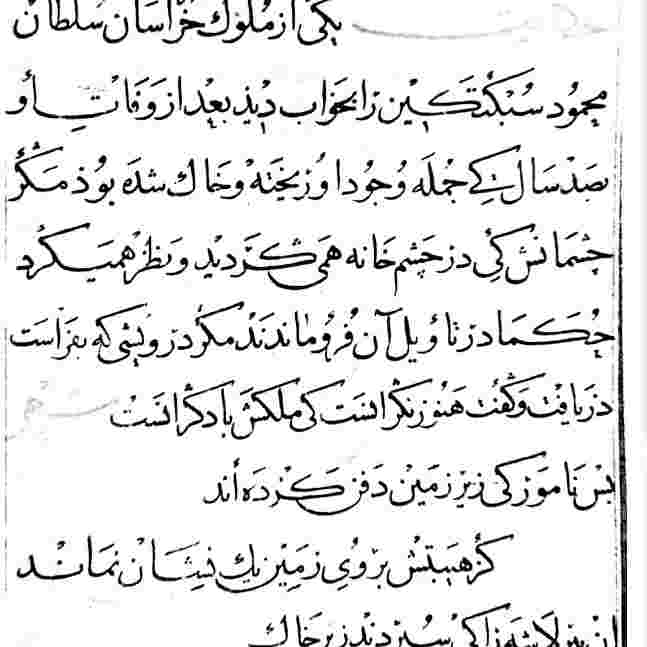 یکی از ملوک خراسان سلطان
محمود سبکتکین را بخواب دیذ بعد از وفات او
بصد سال کی جمله وجود او ریخته و خاک شده بوذ مگر
چشمانش کی در چشم خانه همی گردید و نظر همیکرد
حکما در تاویل آن فرو ماندند مگر درویشی که بفراست
دریافت و گفت هنوز نگرانست کی ملکش با دگرانست
بس نامور کی زیر زمین دفن کرده اند
کز هستیش بروی زمین یک نشان نماند
ان پیر لاشه را کی سپردند زیر خاک